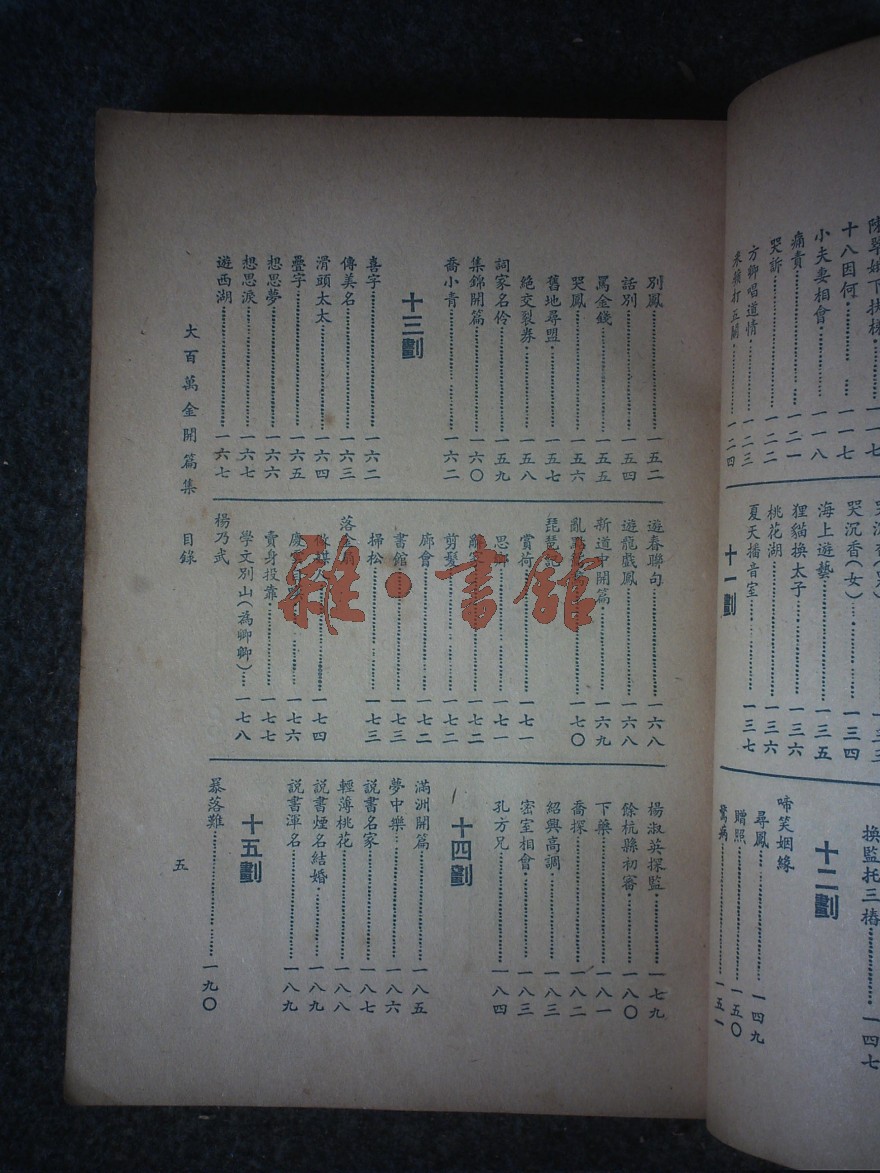 十八因何……一一七
小夫妻相會……一一八
痛責……一二一
哭訴……一二二
方卿唱道情……一二三
來擴打五關……一二四
哭沉香(女)……一三四
海上遊藝……一三五
狸貓換太子……一三六
桃花湖……一三六
夏天播音室……一三七
十一劃
換監托三樁……一四七
十二劃
啼笑姻緣
尋鳳……一四九
贈照……一五〇
驚病……一五一
別鳳……一五二
話別……一五四
罵金錢……一五五
哭鳳……一五六
舊地尋盟……一五七
絕交裂券……一五八
詞家名伶……一五九
集錦開篇……一六〇
喬小青……一六二
十三劃
喜字……一六二
傳美名……一六三
滑頭太太……一六四
疊字……一六五
想思夢……一六六
想思淚……一六七
遊西湖……一六七
遊春聯句……一六八
遊龍戲鳳……一六八
新道中開篇……一六九
亂點……一七〇
琵琶記
賞荷……一七一
思鄉……一七一
……一七二
剪髮……一七二
廊會……一七二
書館……一七三
掃松……一七三
落金扇
做媒人……一七四
慶……一七六
賣身投靠……一七七
學文別山(為卿卿)……一七八
楊乃武
楊淑英探監……一七九
餘杭縣初審……一八〇
下藥……一八一
喬探……一八二
紹興高調……一八三
密室相會……一八三
孔方兄……一八四
十四劃
滿洲開篇……一八五
夢中樂……一八六
說書名家……一八七
輕薄桃花……一八八
說書煙名結婚……一八九
說書渾名……一八九
十五劃
暴落難……一九〇
大百萬金開篇集 目錄
五
雜·書館